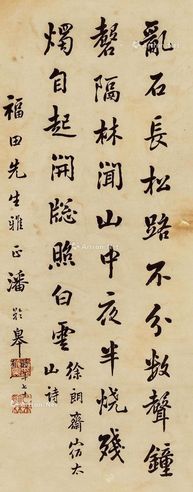 亂石長松路不分數聲鐘
磬隔林聞山中夜半燒殘
燭自起開牕照白雲
徐朗齋仿太
山詩
福田先生雅正潘齡皋